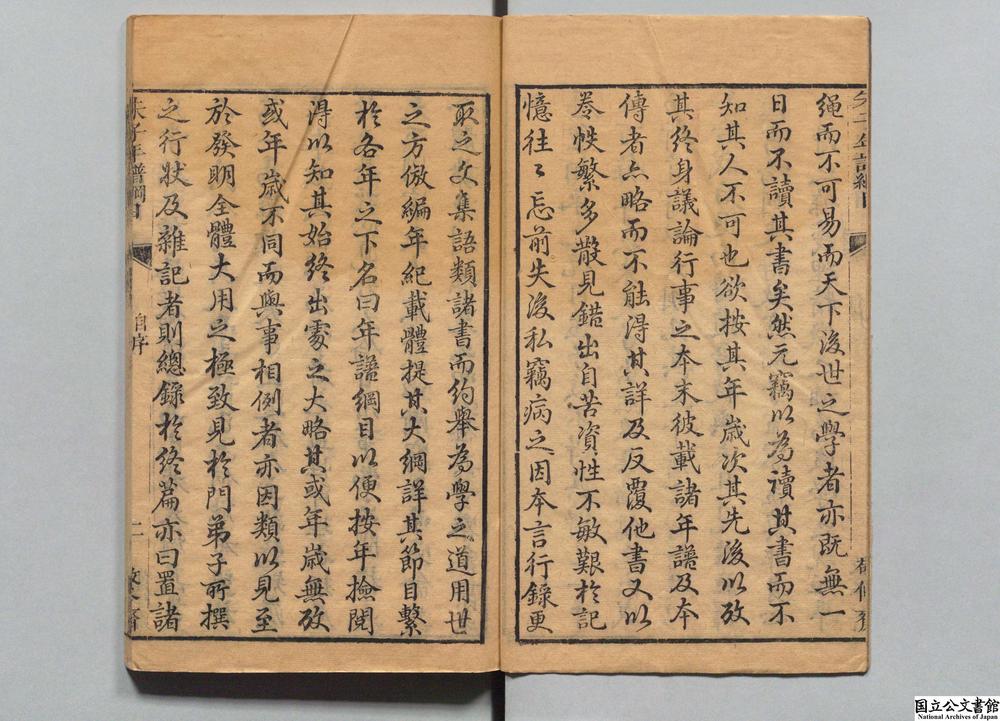 繩而不可易而天下後世之學者亦既無一
日而不讀其書矣然元竊以為讀其書而不
知其人不可也欲按其年歲次其先後以攷
其終身議論行事之本末彼載諸年譜及本
傳者亦略而不能得其詳及反覆他書又以
卷帙繁多散見錯出自苦資性不敏艱於記
憶往〻忘前失後私竊病之因本言行錄更
取之文集語類諸書而約舉為學之道用世
之方倣編年紀載體提其大綱詳其節目繫
於各年之下名曰年譜綱目以便按年撿閱
得以知其始終出處之大略其或年歲無攷
或年歲不同而與事相例者亦因類以見至
於發明全體大用之極致見於門弟子所撰
之行狀及雜記者則總錄於終篇亦曰置諸
朱子年譜綱目
自序
二
国立公文書館
National Archives of Japan